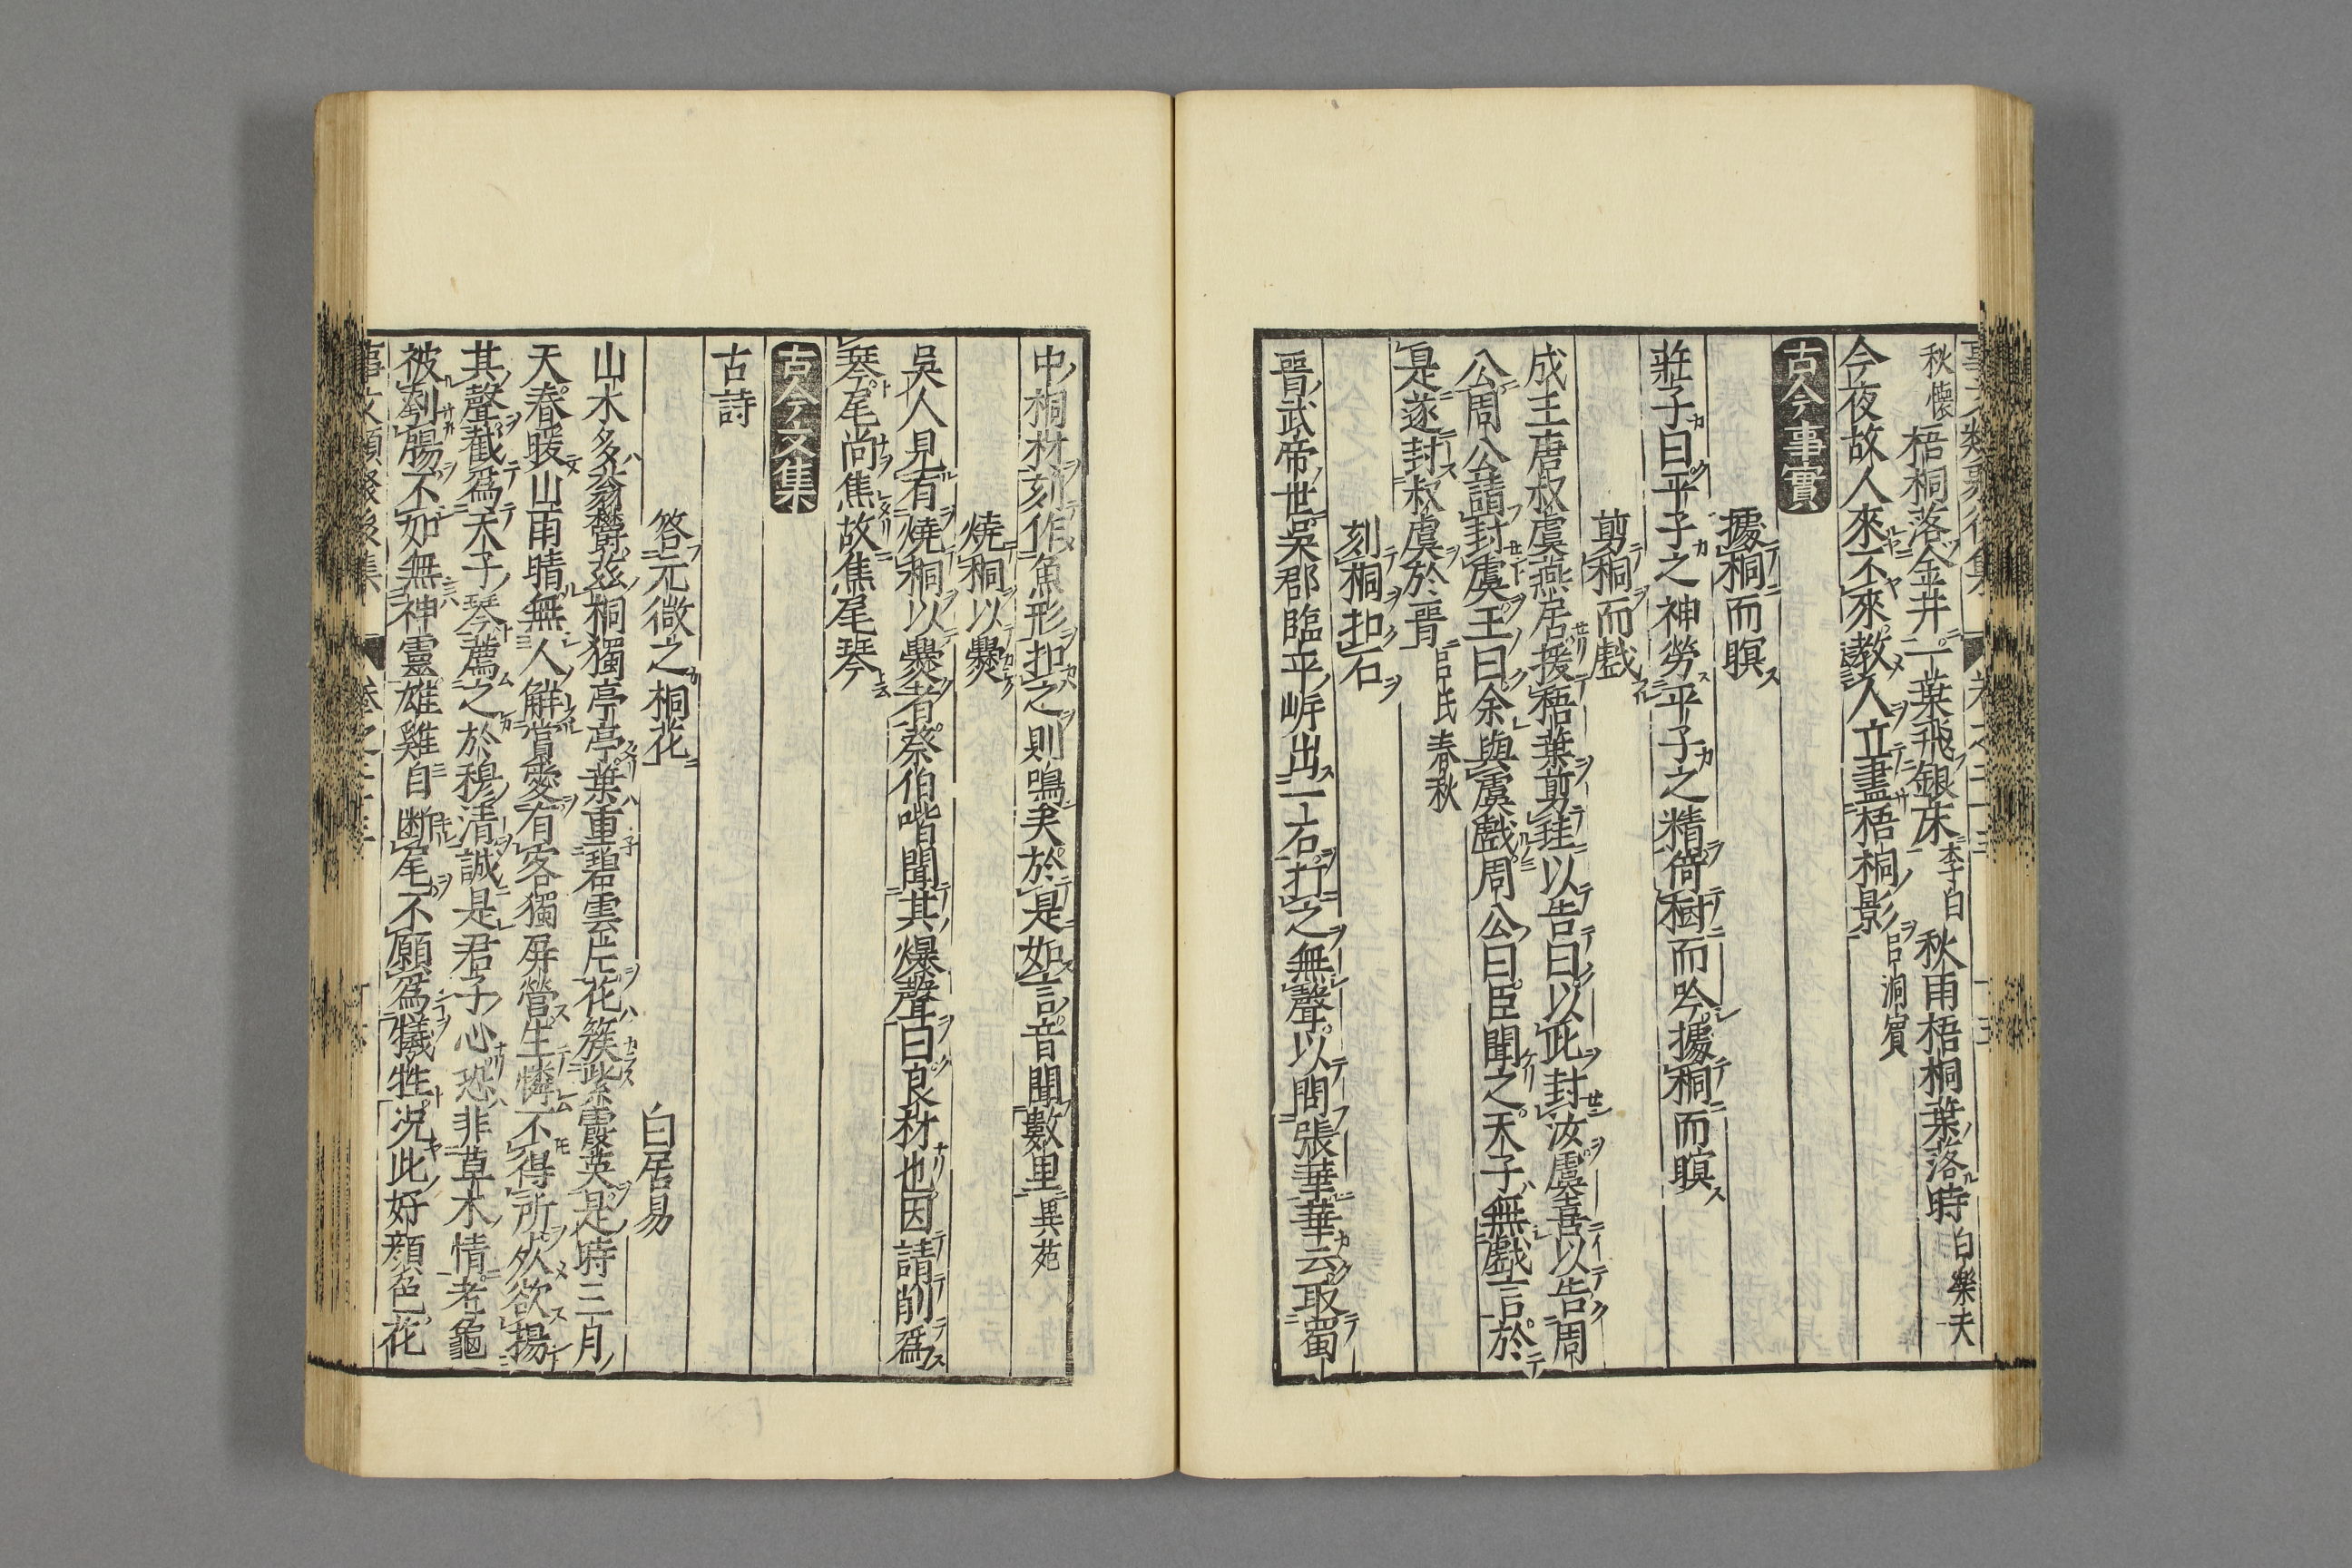 秋懷 梧桐落金井一葉飛銀床 李白 秋雨梧桐葉落時 白樂天
今夜故人來不來教人立盡梧桐影 呂洞賓
古今事實
據桐而瞑
莊子曰平子之神勞平子之精倚樹而吟據桐而瞑
剪桐而戲
成王唐叔虞燕居援梧葉剪珪以告曰以此封汝虞喜以告周
公周公請封虞王曰余與虞戲周公曰臣聞之天子無戲言於
是遂封叔虞於晋 呂氏春秋
刻桐扣石
晋武帝世吳郡臨平岸出一石打之無聲以問張華華云取蜀
中桐材刻作魚形扣之則鳴矣於是如言音聞數里 異苑
燒桐以爨
吳人見有燒桐以爨者蔡伯喈聞其爆聲曰良材也因請削爲
琴尾尚焦故焦尾琴
古今文集
古詩
答元微之桐花 白居易
山水多蓊鬱茲桐獨亭亭葉重碧雲片花簇紫霞英是時三月
天春暖山雨晴無人解賞愛有客獨屏營生憐不得所死欲揚
其聲截爲天子琴薦之於穆清誠是君子心恐非草木情老龜
被刳腸不如無神靈雄雞自断尾不願爲犧牲況此好顏色花